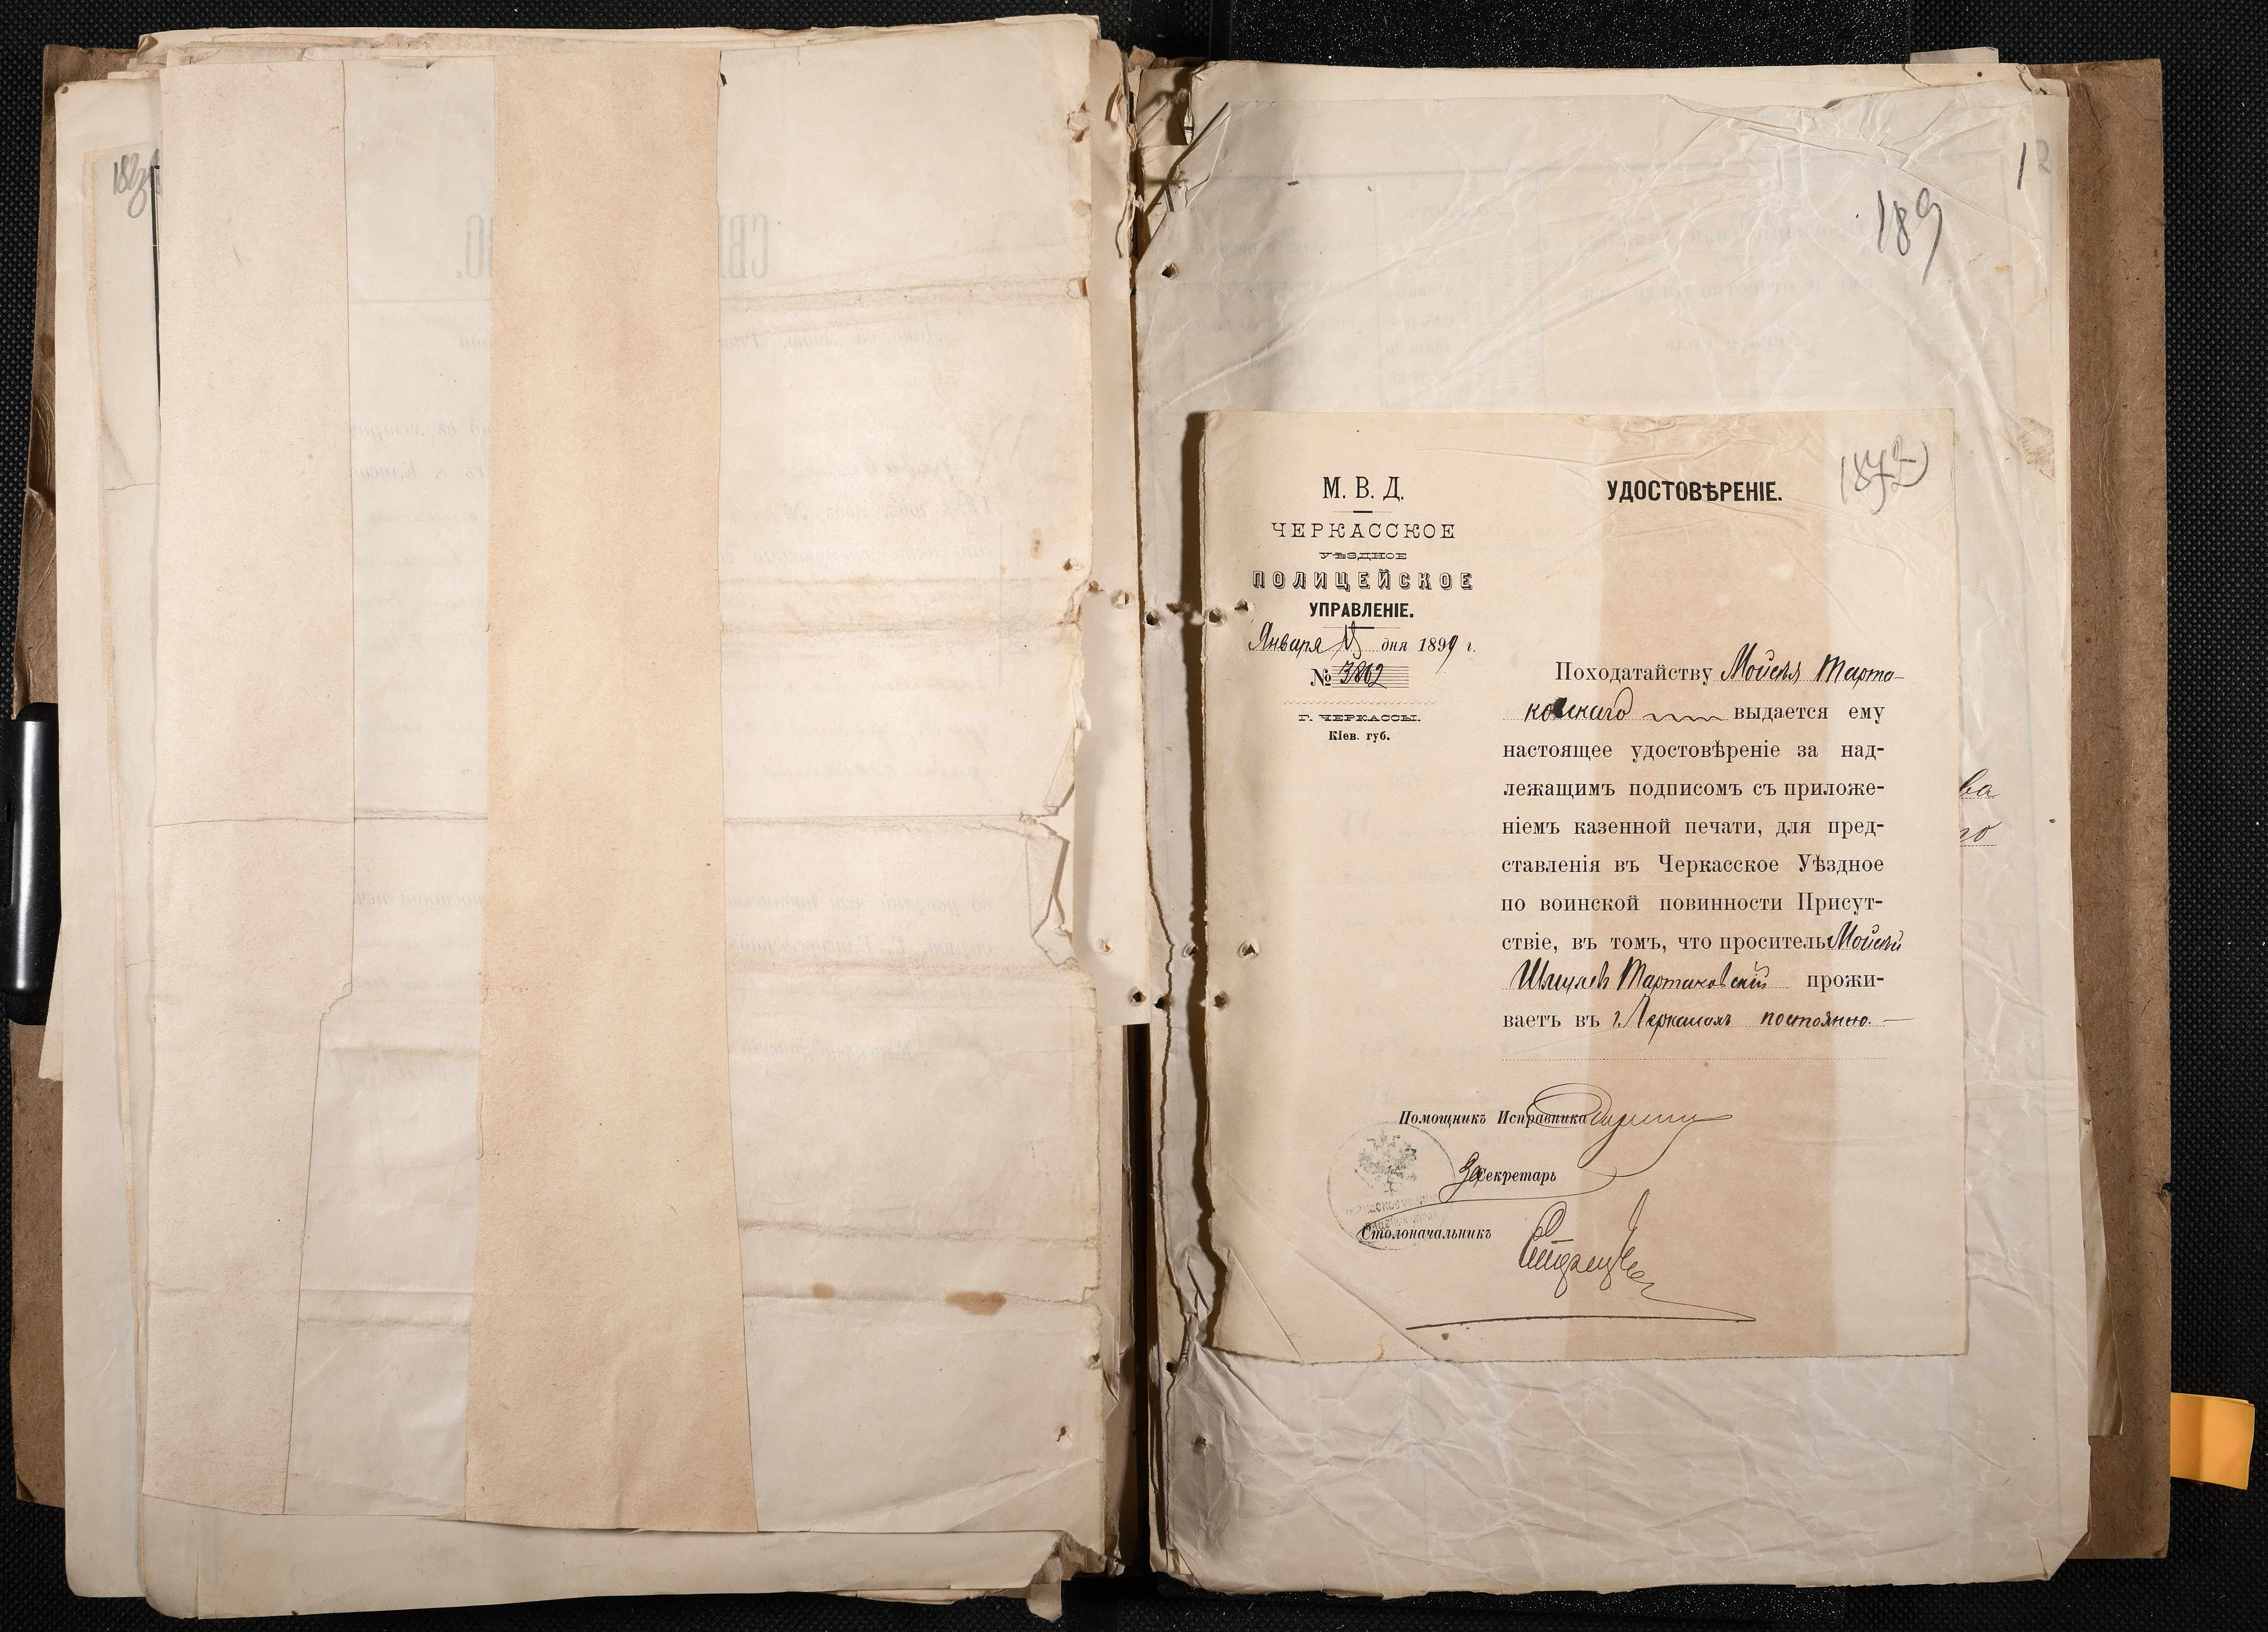 189
М. В. Д.
ЧЕРКАССКОЕ
УѢЗДНОЕ
ПОЛИЦЕЙСКОЕ
УПРАВЛЕНІЕ.
Января 15 дня 1899 г.
№ 3802
Г. ЧЕРКАССЫ.
Кіев. губ.
УДОСТОВѢРЕНІЕ.
Походатайству Мойсея Марта-
ковскаго выдается ему
настоящее удостовѣреніе за над-
лежащимъ подписомъ съ приложе-
ніемъ казенной печати, для пред-
ставленія въ Черкасское Уѣздное
по воинской повинности Присут-
ствіе, въ томъ, что проситель Мойсей
Шмулевъ Мартаковскій прожи-
ваетъ въ г. Черкассахъ постоянно.
Помощникъ Исправника
За Секретарь
Столоначальникъ